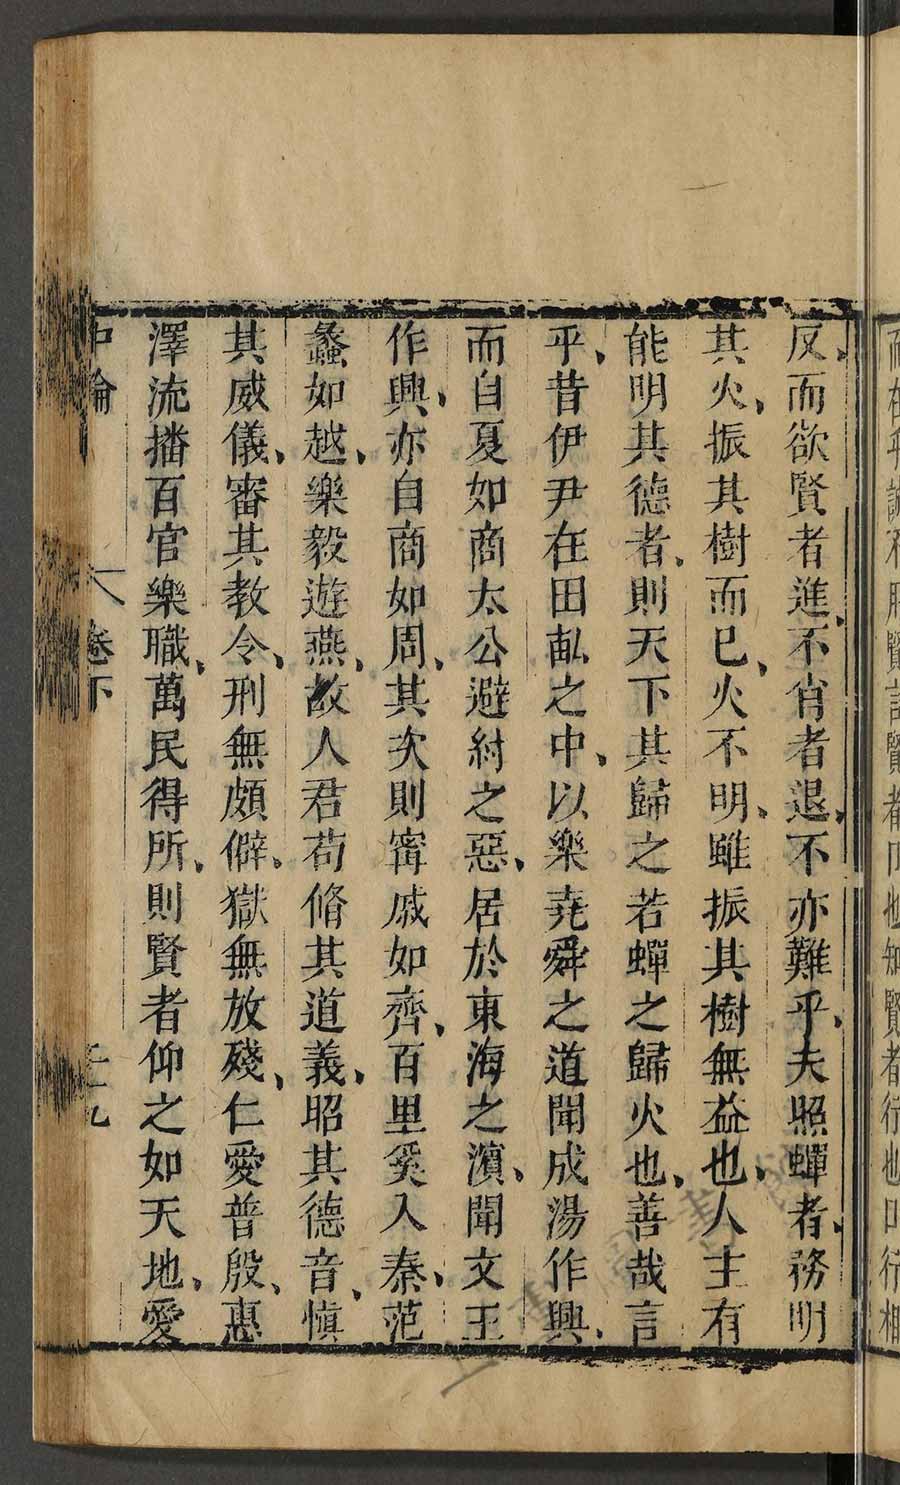 反、而欲賢者進、不肖者退、不亦難乎、夫照蟬者、務明
其火、振其樹而已、火不明、雖振其樹無益也、人主有
能明其德者、則天下其歸之若蟬之歸火也、善哉言
乎、昔伊尹在田畝之中、以樂堯舜之道聞成湯作興、
而自夏如商太公避紂之惡、居於東海之濵、聞文王
作興、亦自商如周、其次則甯戚如齊、百里奚入秦、范
蠡如越、樂毅遊燕、故人君苟脩其道義、昭其德音、慎
其威儀、審其教令、刑無頗僻、獄無放殘、仁愛普殷、惠
澤流播百官樂職、萬民得所、則賢者仰之如天地、愛
中論 卷下